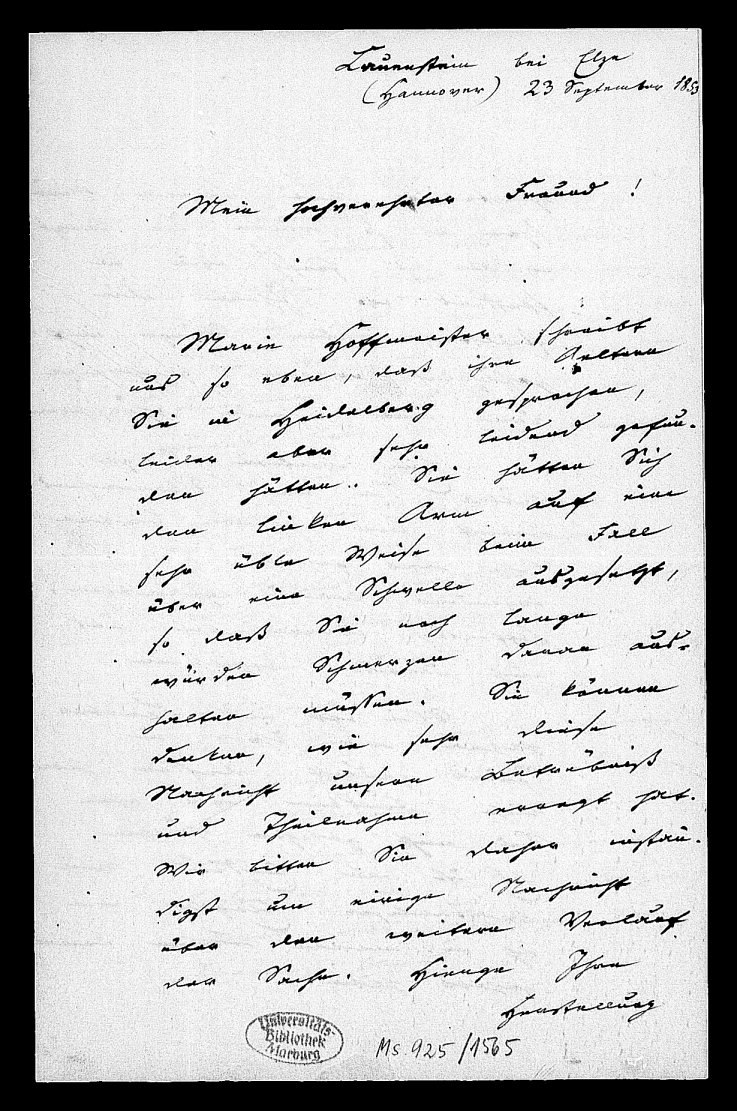 Lauenstein bei Elze
(Hannover) 23 September 1853
Mein hochverehrter Freund!
Marie Hoffmeister schreibt
uns so eben, daß ihre Aeltern
Sie in Heidelberg gesprochen,
leider aber sehr leidend gefun-
den hätten. Sie hätten Sich
den linken Arm auf eine
sehr üble Weise beim Fall
über eine Schwelle ausgesetzt,
so daß Sie noch lange
würden Schmerzen daran aus-
halten müssen. Sie können
denken, wie sehr diese
Nachricht unsere Betrübniß
und Theilnahme erregt hat.
Wir bitten Sie daher instän-
digst um einige Nachricht
über den weitern Verlauf
der Sache. Hienge Ihre
Herstellung
Universitäts-
Bibliothek
Marburg
Ms 925/1565